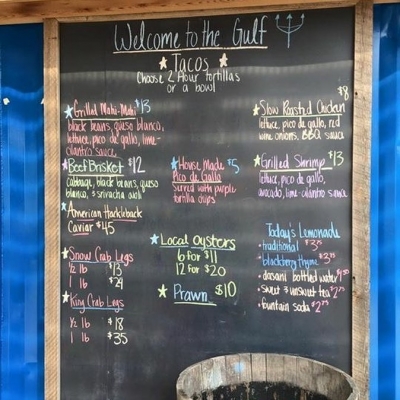 Welcome to the Gulf
Tacos
Choose 2 flour tortillas
or a bowl
Grilled Mahi-Mahi $13
black beans, queso blanco,
lettuce, pico de gallo, lime-
cilantro sauce
Beef Brisket $12
cabbage, black beans, queso
blanco, & sriracha aioli
American Hackleback
Caviar $45
Snow Crab Legs
1/2 lb $13
1 lb $24
King Crab Legs
1/2 lb $18
1 lb $35
House Made $5
Pico de Gallo
served with purple
tortilla chips
Local Oysters
6 for $11
12 for $20
Prawn $10
$8
Slow Roasted Chicken
lettuce, pico de gallo, red
wine onions, BBQ sauce
Grilled Shrimp $13
lettuce, pico de gallo,
avocado, lime-cilantro sauce
Today's Lemonade
• traditional
• blackberry thyme
• dasani bottled water
• sweet & unsweet tea
• fountain soda